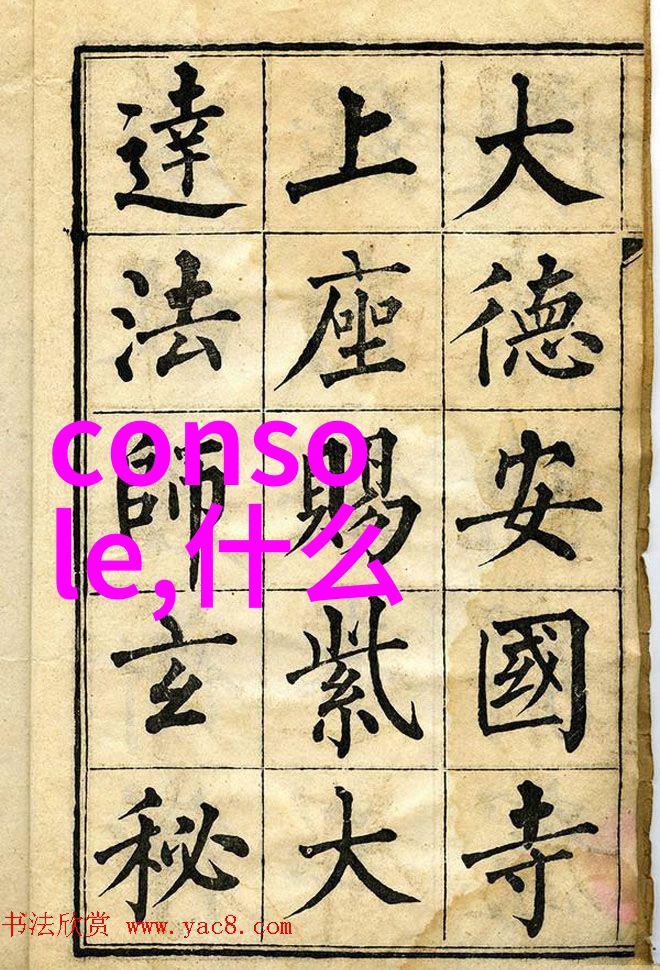 大德安國寺
上座賜紫大
達法師玄秘
conso
le,什么
书法欣赏 www.yac8.com